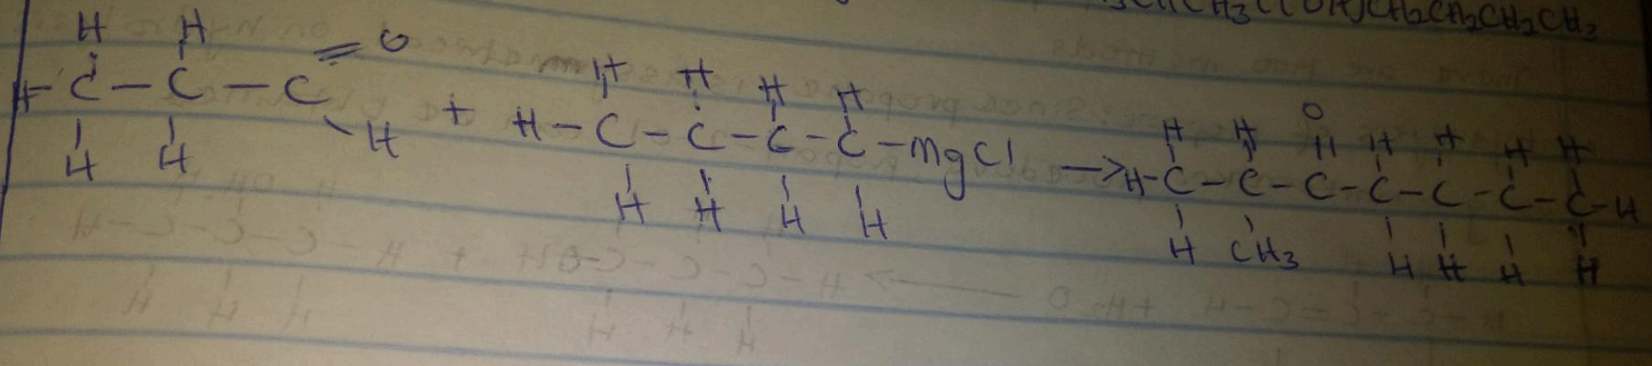 3CHCH3C(OH)CH2CH2CH2CH2
H H O
H-C-C-C H
H H
+
H H H H
H-C-C-C-C-MgCl
H H H H
→
H H O H H H H
H-C-C-C-C-C-C-C-H
H CH3 H H H H